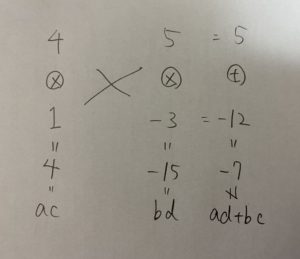 4 5 = 5
⊗ ⊗ ⊕
1 -3 = -12
= = =
4 -15 -7
= = ≠
ac bd ad+bc